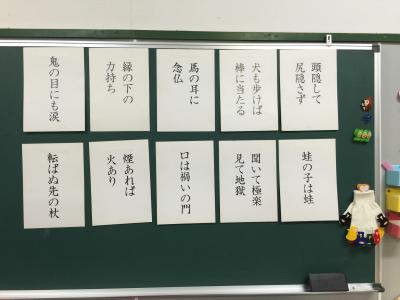 頭隠して
尻隠さず
犬も歩けば
棒に当たる
馬の耳に
念仏
縁の下の
力持ち
鬼の目にも涙
蛙の子は蛙
聞いて極楽
見て地獄
口は禍いの門
煙あれば
火あり
転ばぬ先の杖